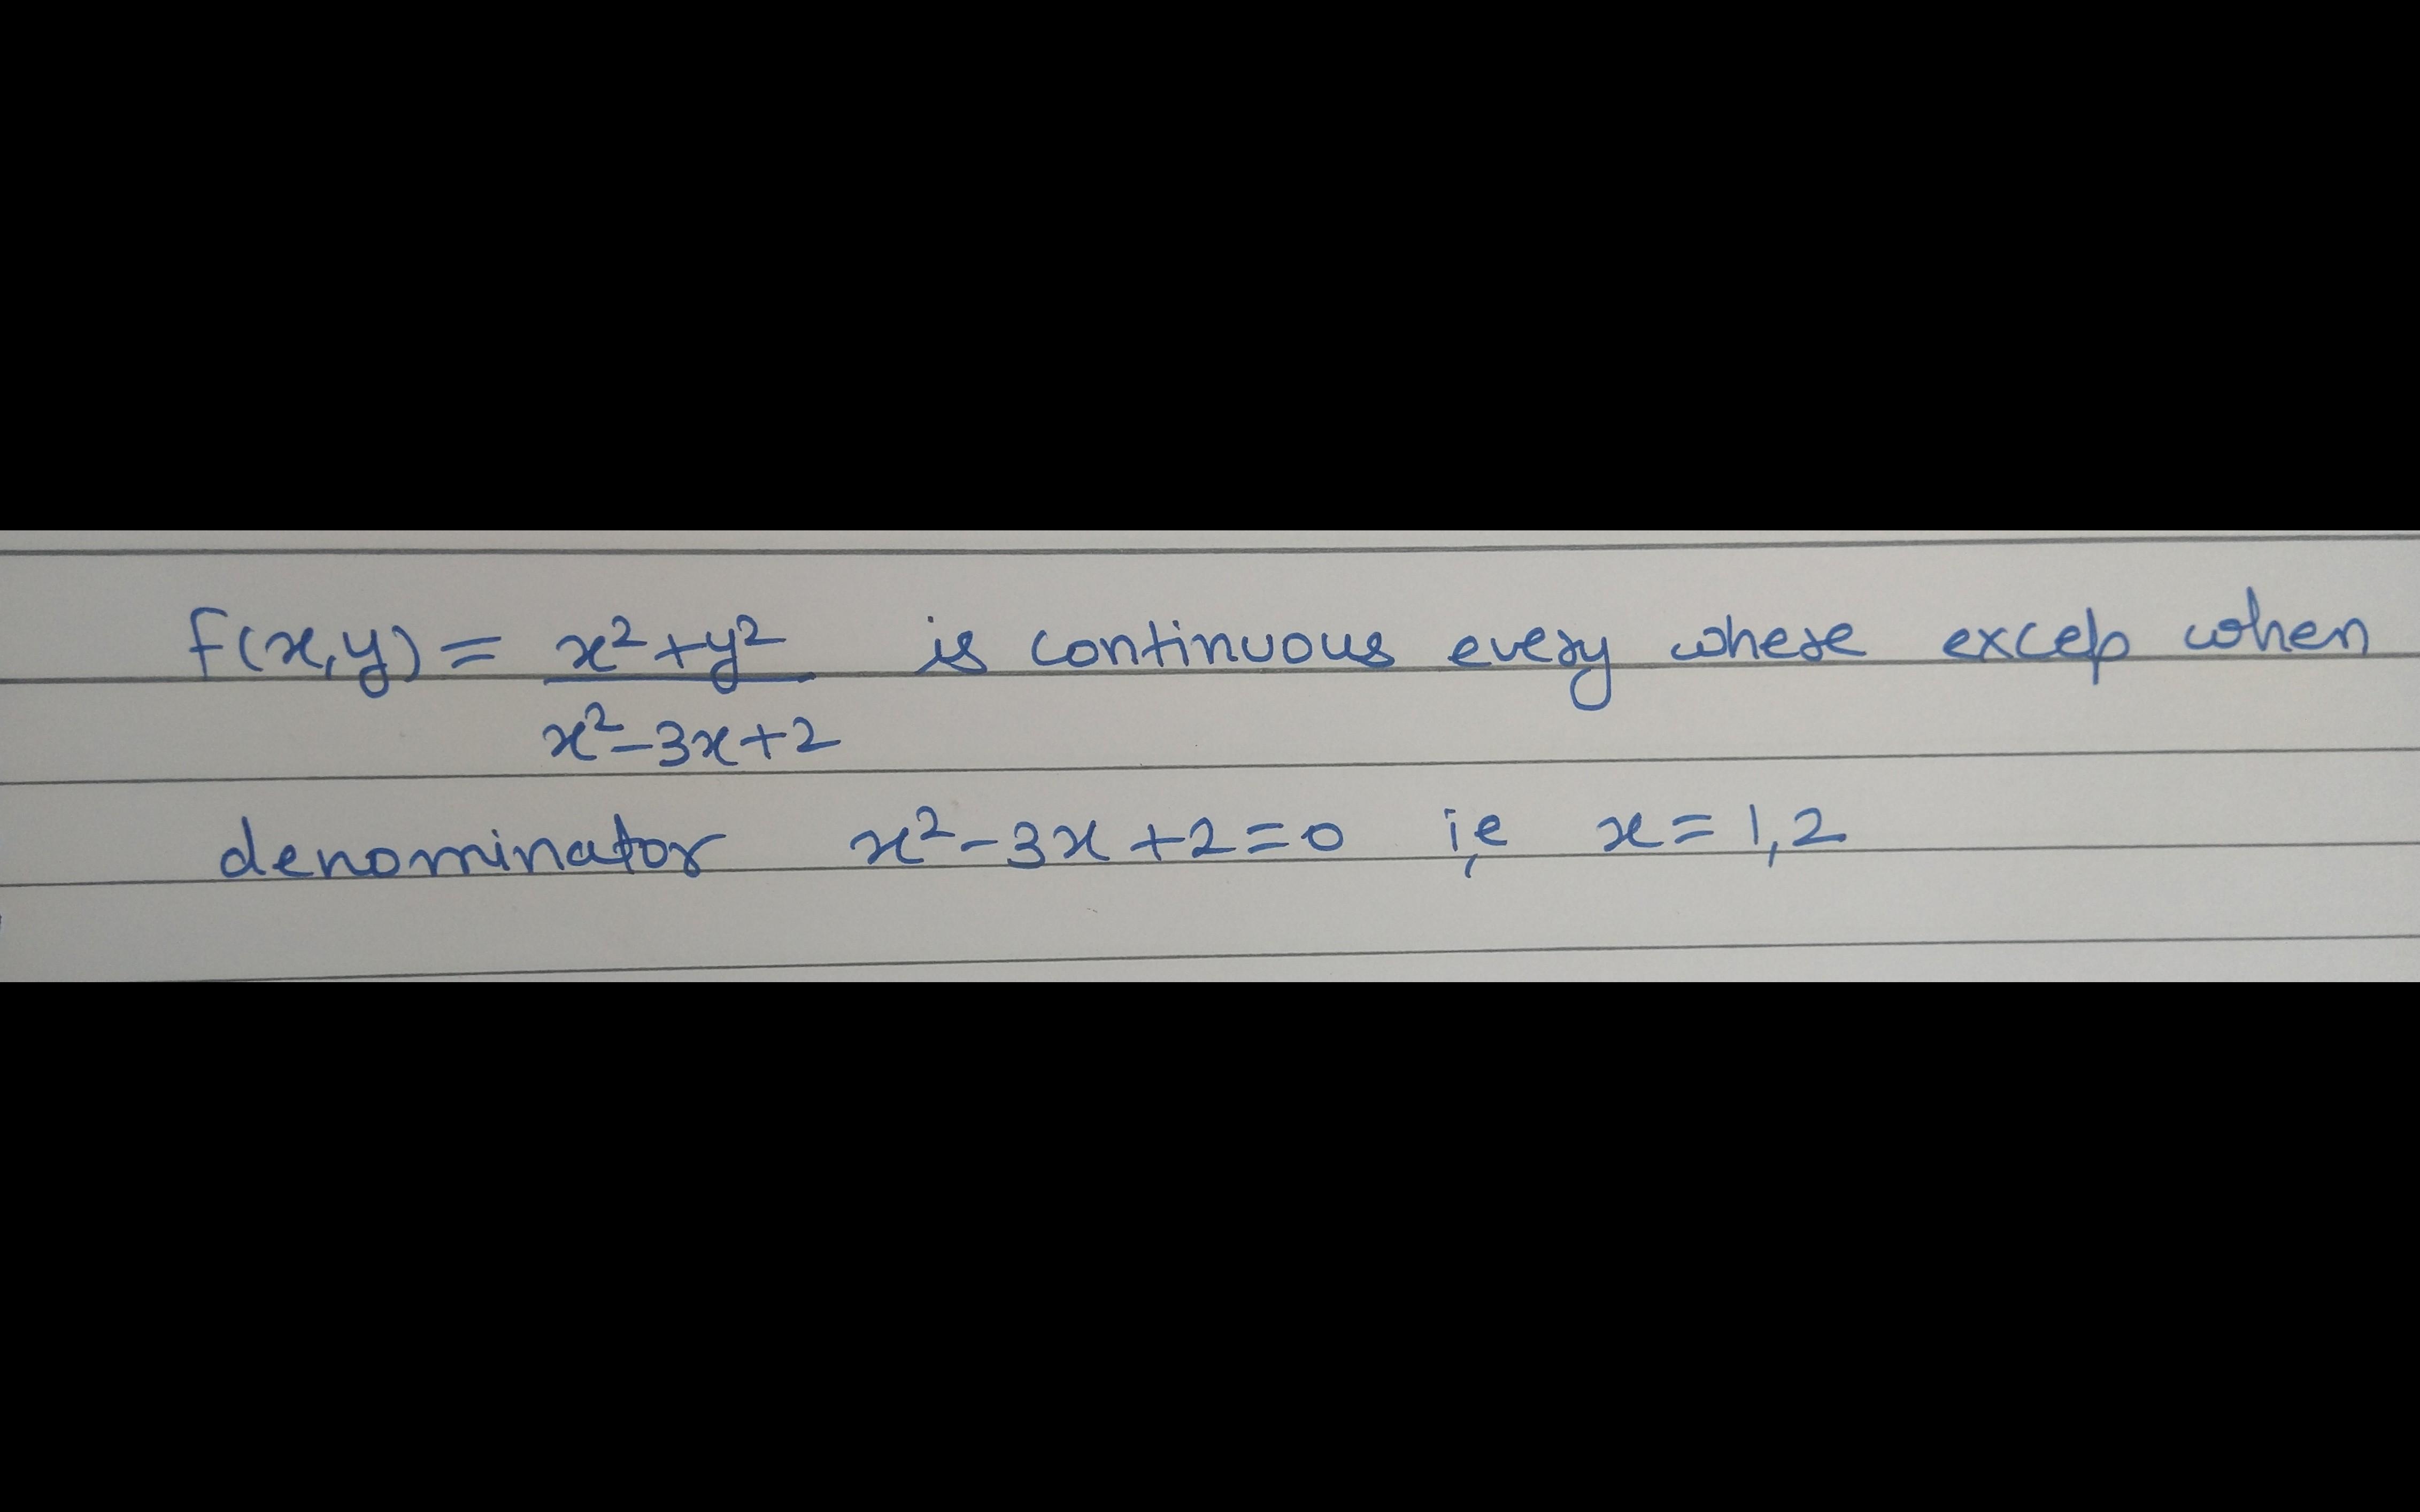 f(x,y) = x²+y² / x²-3x+2 is continuous every where excep when
denominator x²-3x+2=0 i,e x=1,2